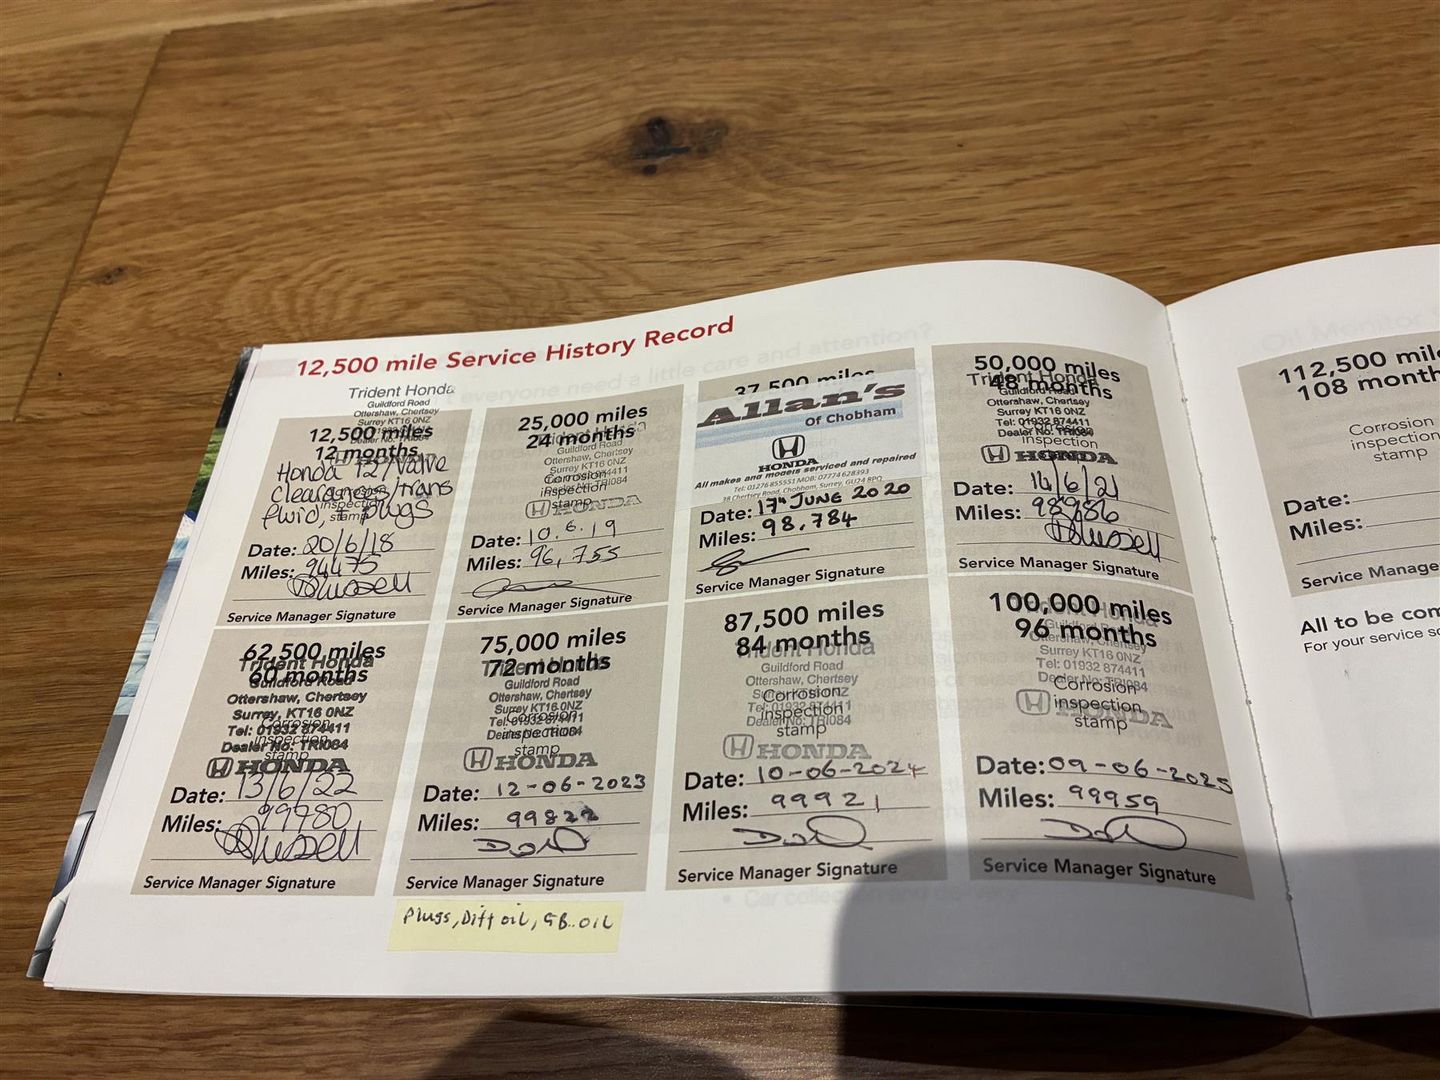 12,500 mile Service History Record
Trident Honda
Guildford Road
Ottershaw, Chertsey
Surrey KT16 0NZ
Dealer No: TRI084
12,500 miles
12 months
Honda T2/Valve
Clearances/trans
fluid, + plugs
Date: 20/6/18
Miles: 94475
Service Manager Signature
25,000 miles
24 months
Trident Honda
Guildford Road
Ottershaw, Chertsey
Surrey KT16 0NZ
Corrosion
inspection
stamp
HONDA
Date: 10.6.19
Miles: 96,755
Service Manager Signature
37,500 miles
Allan's
of Chobham
HONDA
All makes and models serviced and repaired
Tel: 01276 855551 MOB: 07774 628393
38 Chertsey Road, Chobham, Surrey, GU24 8PQ
Date: 17th JUNE 2020
Miles: 98,784
Service Manager Signature
50,000 miles
48 months
Trident Honda
Guildford Road
Ottershaw, Chertsey
Surrey KT16 0NZ
Tel: 01932 874411
Dealer No: TRI084
inspection
HONDA
Date: 14/6/21
Miles: 98986
Service Manager Signature
62,500 miles
60 months
Trident Honda
Guildford Road
Ottershaw, Chertsey
Surrey, KT16 0NZ
Tel: 01932 874411
Corrosion
Dealer No: TRI084
inspection
stamp
HONDA
Date: 13/6/22
Miles: 99480
Service Manager Signature
75,000 miles
72 months
Trident Honda
Guildford Road
Ottershaw, Chertsey
Surrey KT16 0NZ
Tel: 01932 874411
Corrosion
Dealer No: TRI084
inspection
stamp
HONDA
Date: 12-06-2023
Miles: 99822
Service Manager Signature
Plugs, Diff oil, GB. OIL
87,500 miles
84 months
Trident Honda
Guildford Road
Ottershaw, Chertsey
Surrey KT16 0NZ
Corrosion
Tel: 01932 874411
inspection
Dealer No: TRI084
stamp
HONDA
Date: 10-06-2024
Miles: 99921
Service Manager Signature
100,000 miles
96 months
Trident Honda
Guildford Road
Ottershaw, Chertsey
Surrey KT16 0NZ
Tel: 01932 874411
Dealer No: TRI084
Corrosion
inspection
stamp
HONDA
Date: 09-06-2025
Miles: 99959
Service Manager Signature
112,500 mil
108 month
Corrosion
inspection
stamp
Date:
Miles:
Service Manage
All to be com
For your service s